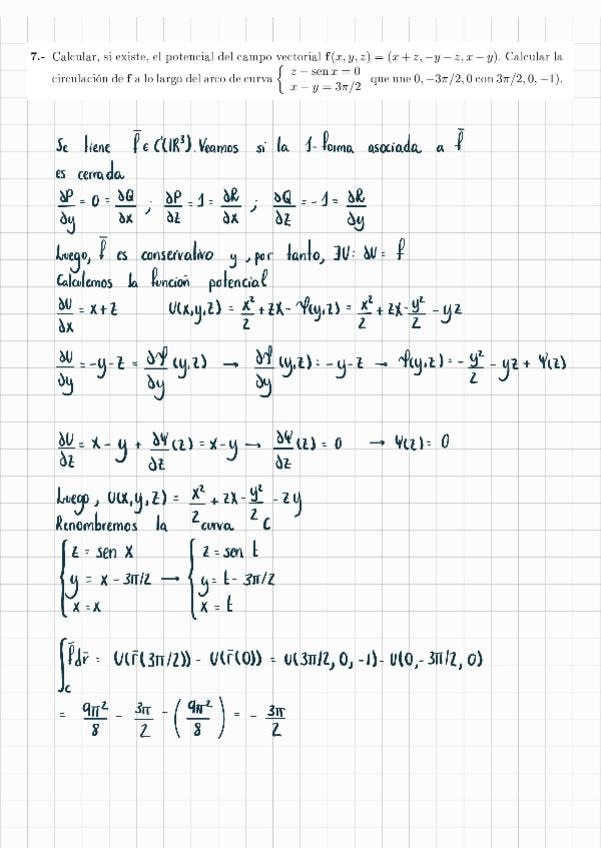 7.- Calcular, si existe, el potencial del campo vectorial f(x, y, z) = (x + z, −y − z, x − y). Calcular la
circulación de f a lo largo del arco de curva { z − sen x = 0 que une 0, −3π/2, 0 con 3π/2, 0, −1).
x − y = 3π/2
Se tiene f̄ ∈ C¹(ℝ³). Veamos si la 1-forma asociada a f̄
es cerrada
∂P/∂y = 0 = ∂Q/∂x ; ∂P/∂z = 1 = ∂R/∂x ; ∂Q/∂z = -1 = ∂R/∂y
Luego, f̄ es conservativo y, por tanto, ∃U: ∂U = f
Calculemos la función potencial
∂U/∂x = x+z U(x,y,z) = x²/2 + zx - φ(y,z) = x²/2 + zx - y²/2 - yz
∂U/∂y = -y-z = ∂φ/∂y (y,z) → ∂φ/∂y (y,z) = -y-z → φ(y,z) = - y²/2 - yz + ψ(z)
∂U/∂z = x - y + ∂ψ/∂z (z) = x-y → ∂ψ/∂z (z) = 0 → ψ(z) = 0
Luego, U(x,y,z) = x²/2 + zx - y²/2 - zy
Renombremos la curva C
{ z = sen x → { z = sen t
y = x - 3π/2 y = t - 3π/2
x = x x = t
∫_C f̄ dr̄ = U(r̄(3π/2)) - U(r̄(0)) = U(3π/2, 0, -1) - U(0, -3π/2, 0)
= 9π²/8 - 3π/2 - (9π²/8) = - 3π/2